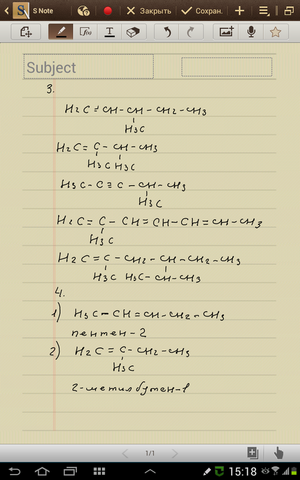 S Note
Закрыть
Сохран.
Subject
3.
H2C=CH-CH-CH2-CH3
H3C
H2C=C-CH-CH3
H3C H3C
H3C-C≡C-CH-CH3
H3C
H2C=C-CH=CH-CH=CH-CH3
H3C
H2C=C-CH2-CH-CH2-CH3
H3C H3C-CH-CH3
4.
1) H3C-CH=CH-CH2-CH3
пентен-2
2) H2C=C-CH2-CH3
H3C
2-метилбутен-1
1/1
15:18